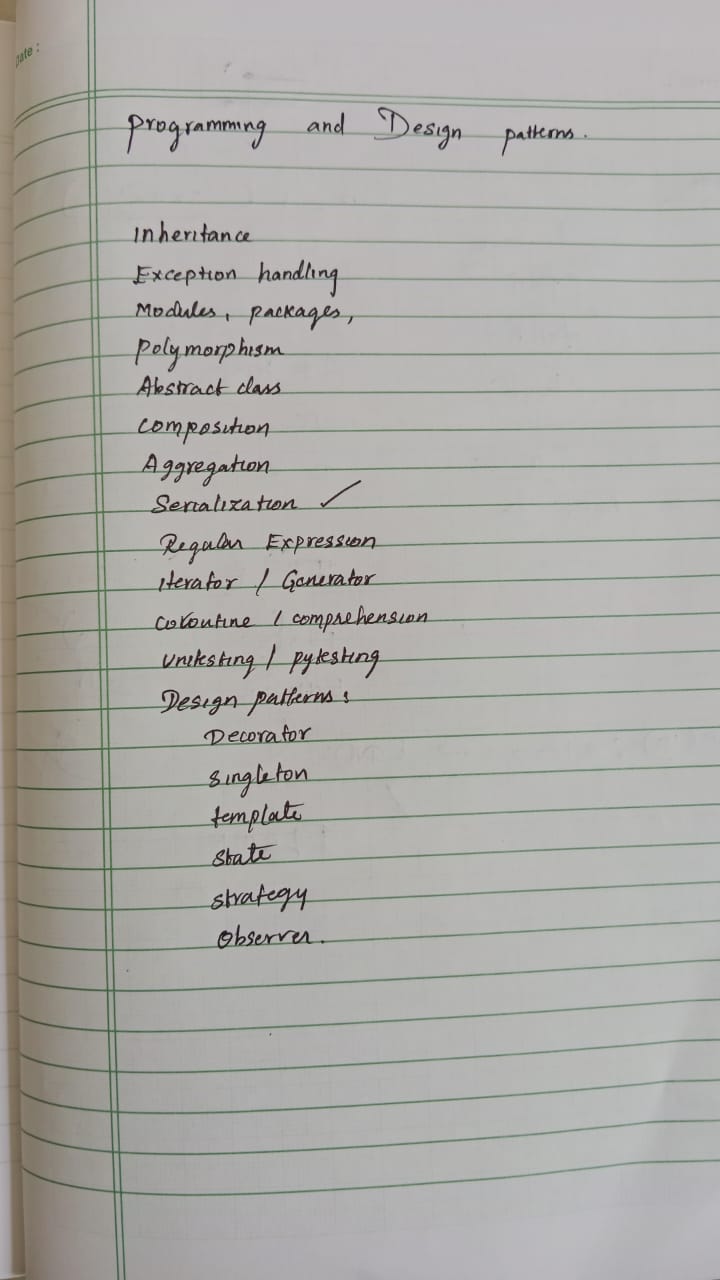 Date :
Programming and Design patterns.
Inheritance
Exception handling
Modules, packages,
polymorphism
Abstract class
Composition
Aggregation
Serialization ✓
Regular Expression
iterator / Generator
coroutine / comprehension
unitesting / pytesting
Design patterns :
Decorator
singleton
template
state
strategy
observer.